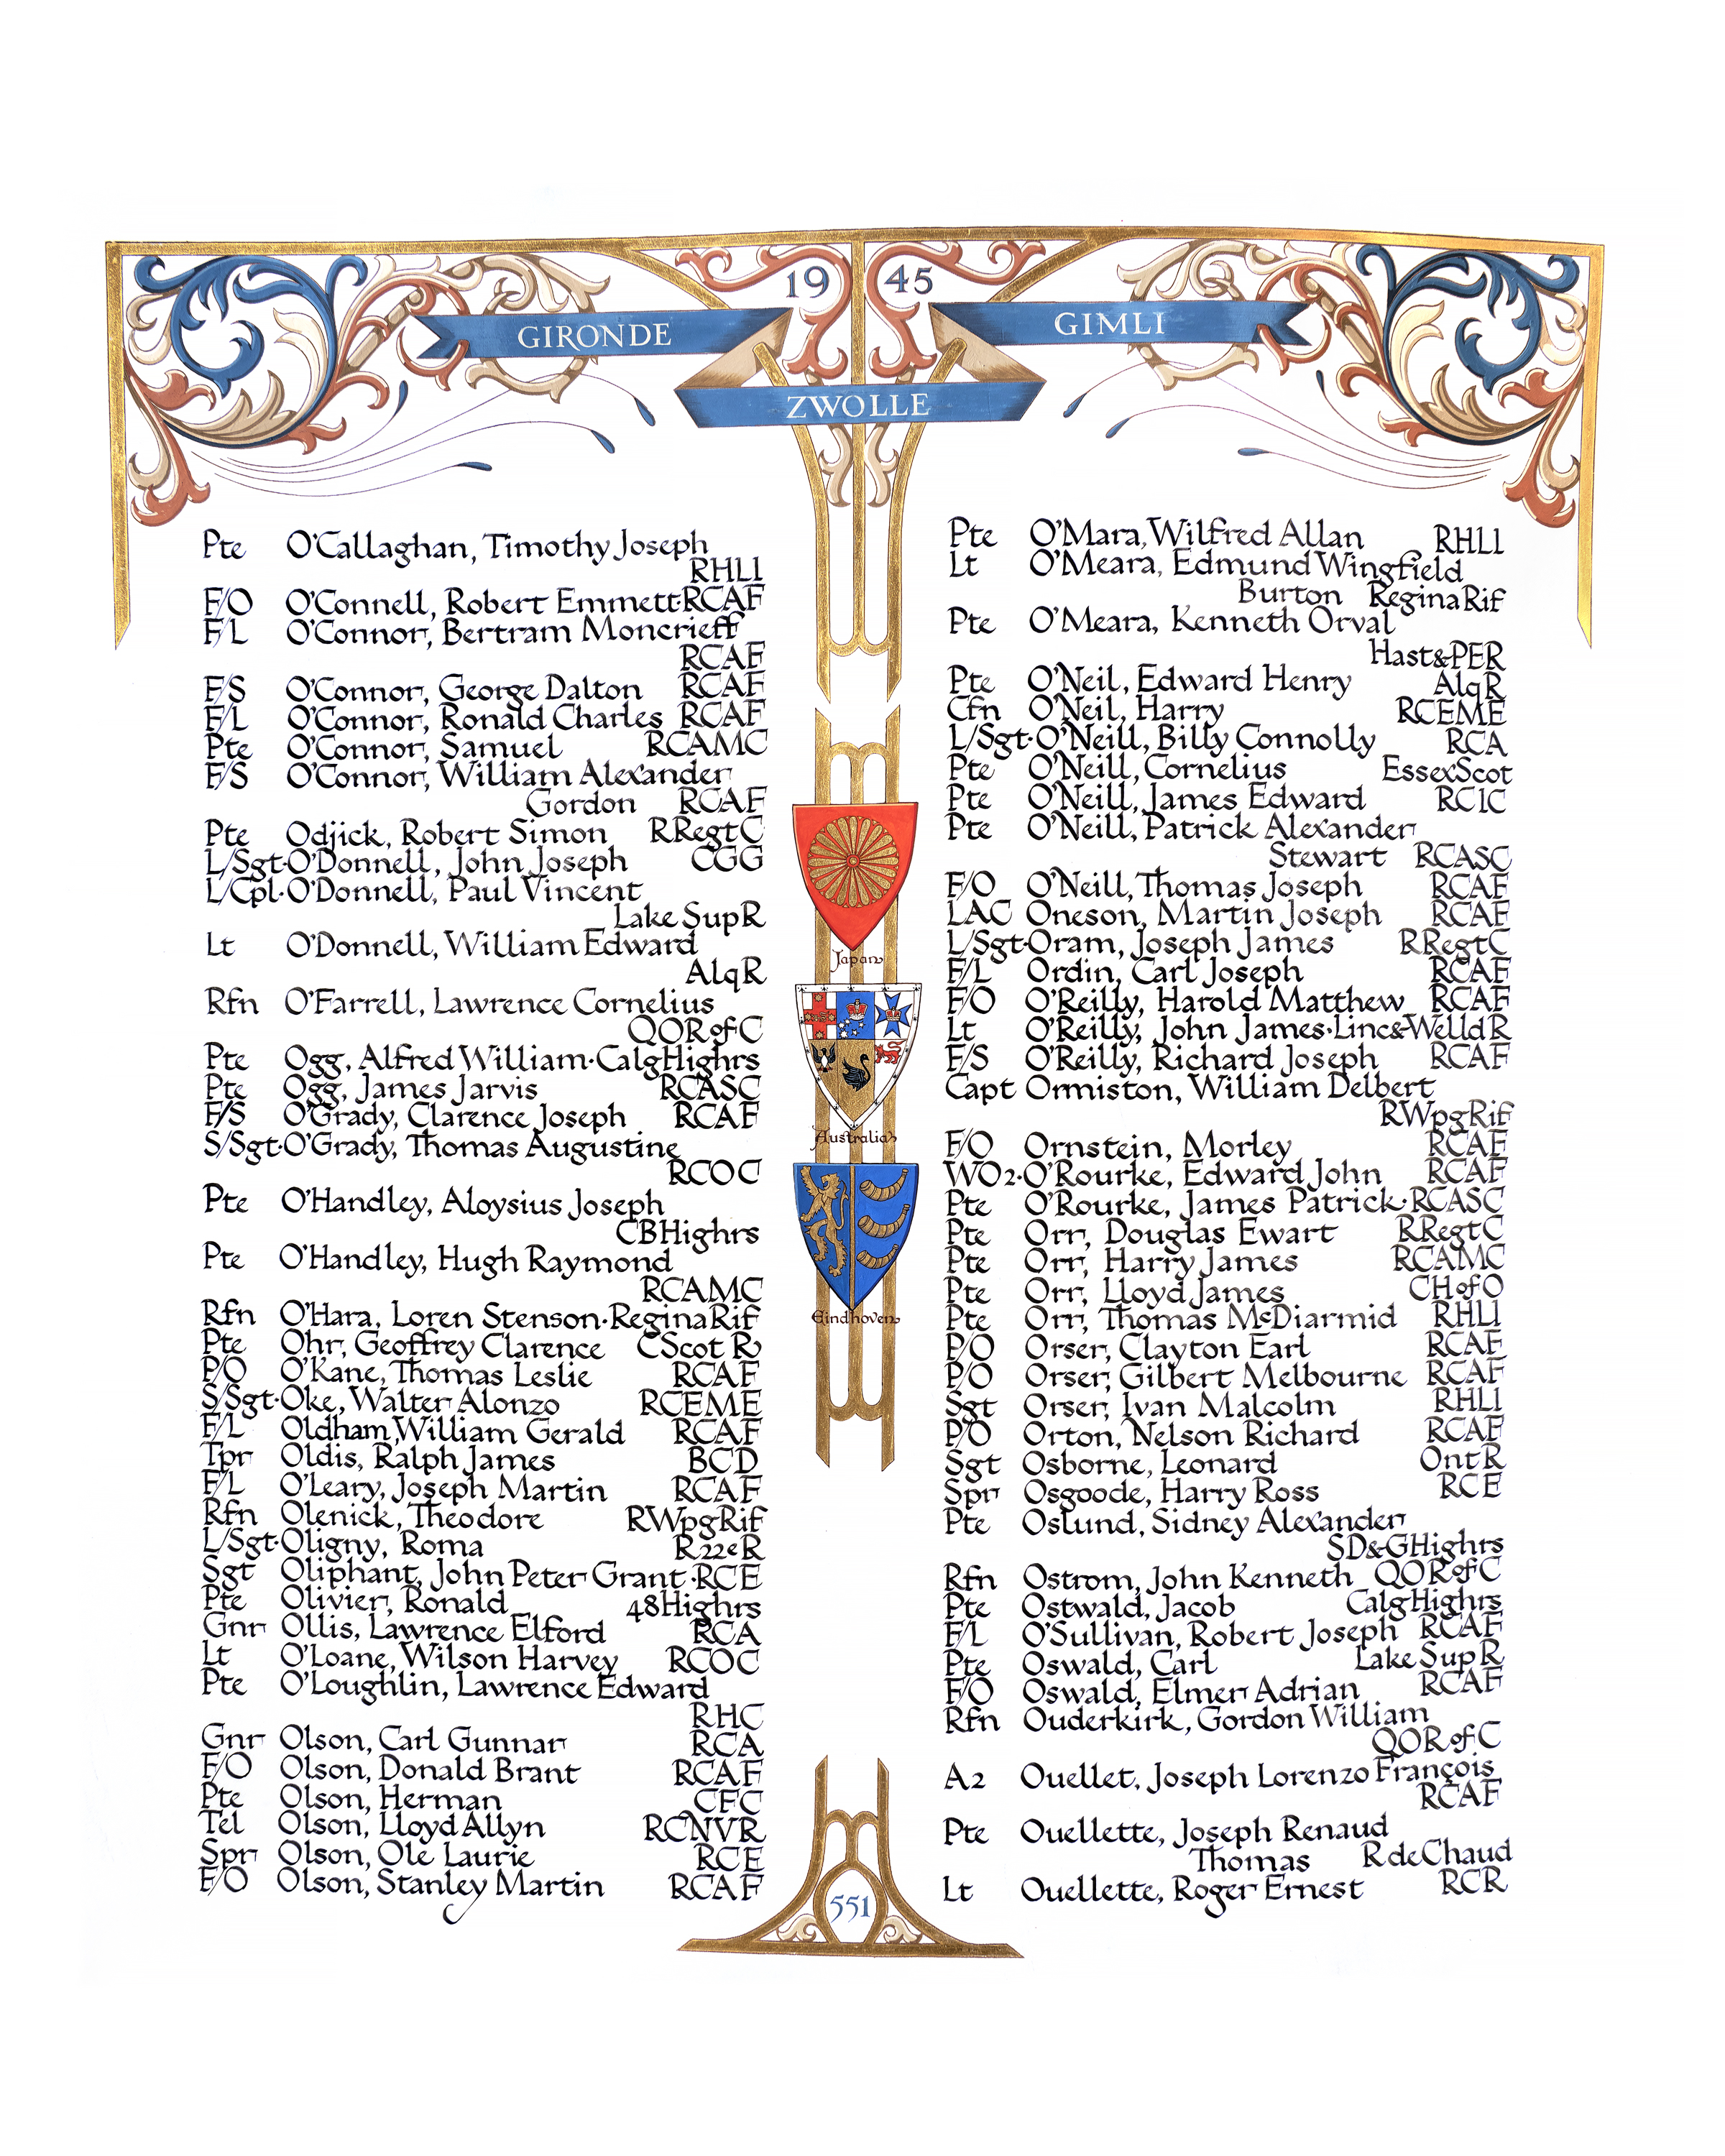 19 45
GIRONDE
GIMLI
ZWOLLE
Pte O'Callaghan, Timothy Joseph
RHLI
F/O O'Connell, Robert Emmett·RCAF
F/L O'Connor, Bertram Moncrieff
RCAF
F/S O'Connor, George Dalton RCAF
F/L O'Connor, Ronald Charles RCAF
Pte O'Connor, Samuel RCAMC
F/S O'Connor, William Alexander
Gordon RCAF
Pte Odjick, Robert Simon RRegtC
L/Sgt·O'Donnell, John Joseph CGG
L/Cpl·O'Donnell, Paul Vincent
Lake SupR
Lt O'Donnell, William Edward
AlqR
Rfn O'Farrell, Lawrence Cornelius
QORofC
Pte Ogg, Alfred William·CalgHighrs
Pte Ogg, James Jarvis RCASC
F/S O'Grady, Clarence Joseph RCAF
S/Sgt·O'Grady, Thomas Augustine
RCOC
Pte O'Handley, Aloysius Joseph
CBHighrs
Pte O'Handley, Hugh Raymond
RCAMC
Rfn O'Hara, Loren Stenson·ReginaRif
Pte Ohr, Geoffrey Clarence CScot R
P/O O'Kane, Thomas Leslie RCAF
S/Sgt·Oke, Walter Alonzo RCEME
F/L Oldham, William Gerald RCAF
Tpr Oldis, Ralph James BCD
F/L O'Leary, Joseph Martin RCAF
Rfn Olenick, Theodore RWpgRif
L/Sgt·Oligny, Roma R22eR
Sgt Oliphant, John Peter Grant·RCE
Pte Olivier, Ronald 48Highrs
Gnr Ollis, Lawrence Elford RCA
Lt O'Loane, Wilson Harvey RCOC
Pte O'Loughlin, Lawrence Edward
RHC
Gnr Olson, Carl Gunnar RCA
F/O Olson, Donald Brant RCAF
Pte Olson, Herman CFC
Tel Olson, Lloyd Allyn RCNVR
Spr Olson, Ole Laurie RCE
F/O Olson, Stanley Martin RCAF
Japan
Australia
Eindhoven
551
Pte O'Mara, Wilfred Allan RHLI
Lt O'Meara, Edmund Wingfield
Burton ReginaRif
Pte O'Meara, Kenneth Orval
Hast&PER
Pte O'Neil, Edward Henry AlqR
Cfn O'Neil, Harry RCEME
L/Sgt·O'Neill, Billy Connolly RCA
Pte O'Neill, Cornelius EssexScot
Pte O'Neill, James Edward RCIC
Pte O'Neill, Patrick Alexander
Stewart RCASC
F/O O'Neill, Thomas Joseph RCAF
LAC Oneson, Martin Joseph RCAF
L/Sgt·Oram, Joseph James RRegtC
F/L Ordin, Carl Joseph RCAF
F/O O'Reilly, Harold Matthew RCAF
Lt O'Reilly, John James·Linc&WelldR
F/S O'Reilly, Richard Joseph RCAF
Capt Ormiston, William Delbert
RWpgRif
F/O Ornstein, Morley RCAF
WO2·O'Rourke, Edward John RCAF
Pte O'Rourke, James Patrick·RCASC
Pte Orr, Douglas Ewart RRegtC
Pte Orr, Harry James RCAMC
Pte Orr, Lloyd James CHofO
Pte Orr, Thomas McDiarmid RHLI
P/O Orser, Clayton Earl RCAF
P/O Orser, Gilbert Melbourne RCAF
Sgt Orser, Ivan Malcolm RHLI
P/O Orton, Nelson Richard RCAF
Sgt Osborne, Leonard OntR
Spr Osgoode, Harry Ross RCE
Pte Oslund, Sidney Alexander
SD&GHighrs
Rfn Ostrom, John Kenneth QORofC
Pte Ostwald, Jacob CalgHighrs
F/L O'Sullivan, Robert Joseph RCAF
Pte Oswald, Carl Lake Sup R
F/O Oswald, Elmer Adrian RCAF
Rfn Ouderkirk, Gordon William
QORofC
A2 Ouellet, Joseph Lorenzo François
RCAF
Pte Ouellette, Joseph Renaud
Thomas RdeChaud
Lt Ouellette, Roger Ernest RCR